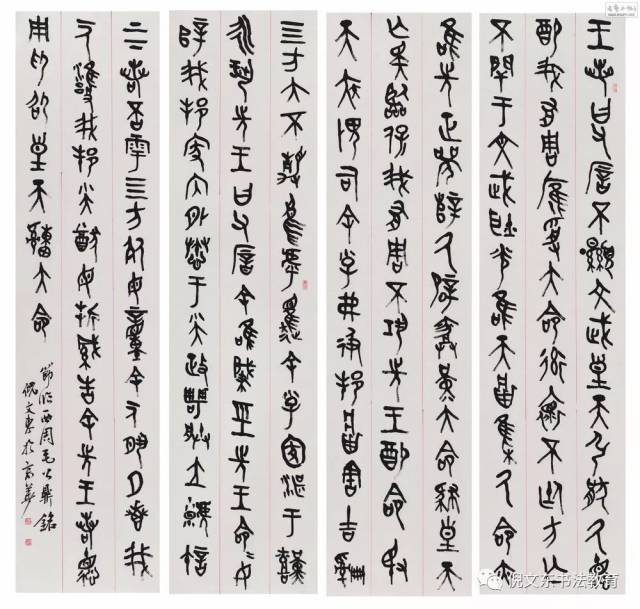 王若曰父厝不顯文武皇天引厭厥德
配我有周膺受大命率懷不廷方亡
不閈于文武耿光唯天將集厥命亦
唯先正辥厥辟勤大命肆皇天
亡斁臨保我有周不鞏先王配命敃
天疾畏司余小子弗彶邦將害吉
四方大不靜烏虖懼余小子圂湛于艱
永鞏先王曰父厝今余唯肇經先王命命女
辥我邦我家內外惷于小大政屏朕位虩許上
下若否雩四方死毋童余一人夙夕我
一人雍我邦小大猷毋折緘告余先王若德
用仰邵皇天大命
節臨西周毛公鼎銘
倪文東於京華
倪文东书法教育